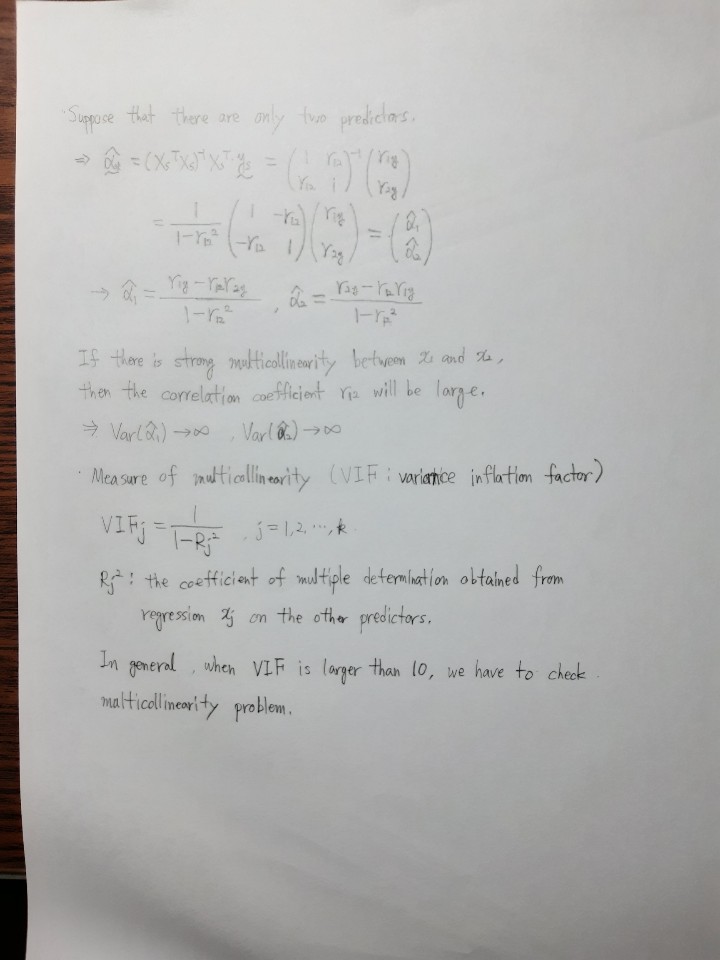 · Suppose that there are only two predictors.
⇒ α̂ₛ = (XₛᵀXₛ)⁻¹Xₛᵀyₛ = (1 r₁₂ ; r₁₂ 1)⁻¹ (r₁y ; r₂y)
= 1/(1-r₁₂²) (1 -r₁₂ ; -r₁₂ 1) (r₁y ; r₂y) = (α̂₁ ; α̂₂)
→ α̂₁ = (r₁y - r₁₂r₂y)/(1-r₁₂²) , α̂₂ = (r₂y - r₁₂r₁y)/(1-r₁₂²)
If there is strong multicollinearity between x₁ and x₂,
then the correlation coefficient r₁₂ will be large.
⇒ Var(α̂₁) → ∞ , Var(α̂₂) → ∞
· Measure of multicollinearity (VIF : variance inflation factor)
VIFⱼ = 1/(1-Rⱼ²) , j = 1, 2, ..., k
Rⱼ² : the coefficient of multiple determination obtained from
regression xⱼ on the other predictors.
In general, when VIF is larger than 10, we have to check
malticollinearity problem.